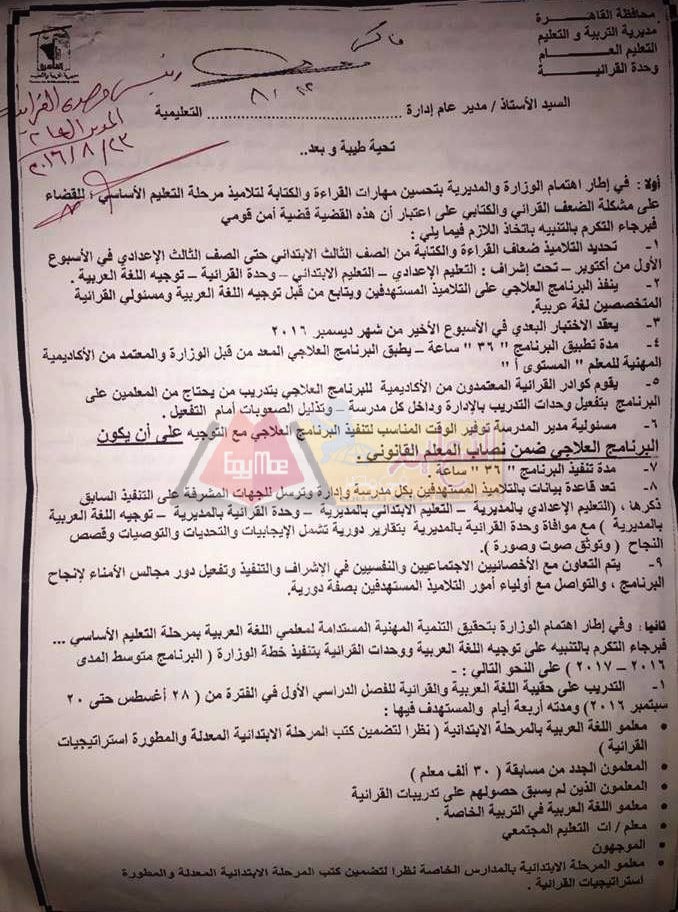 محافظة القاهرة
مديرية التربية و التعليم
التعليم العام
وحدة القرائية
فاكس
٨/٢٢
المدير العام
٢٠١٦/٨/٢٣
السيد الأستاذ / مدير عام إدارة ........................ التعليمية
تحية طيبة و بعد ..
أولا : في إطار اهتمام الوزارة والمديرية بتحسين مهارات القراءة والكتابة لتلاميذ مرحلة التعليم الأساسي ؛ للقضاء
على مشكلة الضعف القرائي والكتابي على اعتبار أن هذه القضية قضية أمن قومي
فبرجاء التكرم بالتنبيه باتخاذ اللازم فيما يلي :
١- تحديد التلاميذ ضعاف القراءة والكتابة من الصف الثالث الابتدائي حتى الصف الثالث الإعدادي في الأسبوع
الأول من أكتوبر – تحت إشراف : التعليم الإعدادي – التعليم الابتدائي – وحدة القرائية – توجيه اللغة العربية .
٢- ينفذ البرنامج العلاجي على التلاميذ المستهدفين ويتابع من قبل توجيه اللغة العربية ومسئولي القرائية
المتخصصين لغة عربية.
٣- يعقد الاختبار البعدي في الأسبوع الأخير من شهر ديسمبر ٢٠١٦
٤- مدة تطبيق البرنامج " ٣٦ " ساعة – يطبق البرنامج العلاجي المعد من قبل الوزارة والمعتمد من الأكاديمية
المهنية للمعلم " المستوى أ "
٥- يقوم كوادر القرائية المعتمدون من الأكاديمية للبرنامج العلاجي بتدريب من يحتاج من المعلمين على
البرنامج بتفعيل وحدات التدريب بالإدارة وداخل كل مدرسة – وتذليل الصعوبات أمام التفعيل .
٦- مسئولية مدير المدرسة توفير الوقت المناسب لتنفيذ البرنامج العلاجي مع التوجيه على أن يكون
البرنامج العلاجي ضمن نصاب المعلم القانوني .
٧- مدة تنفيذ البرنامج " ٣٦ " ساعة
٨- تعد قاعدة بيانات بالتلاميذ المستهدفين بكل مدرسة وإدارة وترسل للجهات المشرفة على التنفيذ السابق
ذكرها ، (التعليم الإعدادي بالمديرية – التعليم الابتدائي بالمديرية – وحدة القرائية بالمديرية – توجيه اللغة العربية
بالمديرية ) مع موافاة وحدة القرائية بالمديرية بتقارير دورية تشمل الإيجابيات والتحديات والتوصيات وقصص
النجاح ( وتوثق صوت وصورة ).
٩- يتم التعاون مع الأخصائيين الاجتماعيين والنفسيين في الإشراف والتنفيذ وتفعيل دور مجالس الأمناء لإنجاح
البرنامج ، والتواصل مع أولياء أمور التلاميذ المستهدفين بصفة دورية.
ثانيا : وفي إطار اهتمام الوزارة بتحقيق التنمية المهنية المستدامة لمعلمي اللغة العربية بمرحلة التعليم الأساسي ...
فبرجاء التكرم بالتنبيه على توجيه اللغة العربية ووحدات القرائية بتنفيذ خطة الوزارة ( البرنامج متوسط المدى
٢٠١٦ – ٢٠١٧ ) على النحو التالي : -
١- التدريب على حقيبة اللغة العربية والقرائية للفصل الدراسي الأول في الفترة من ( ٢٨ أغسطس حتى ٢٠
سبتمبر ٢٠١٦) ومدته أربعة أيام والمستهدف فيها :
• معلمو اللغة العربية بالمرحلة الابتدائية ( نظرا لتضمين كتب المرحلة الابتدائية المعدلة والمطورة استراتيجيات
القرائية )
• المعلمون الجدد من مسابقة ( ٣٠ ألف معلم )
• المعلمون الذين لم يسبق حصولهم على تدريبات القرائية
• معلمو اللغة العربية في التربية الخاصة .
• معلم / ات التعليم المجتمعي
• الموجهون
• معلمو المرحلة الابتدائية بالمدارس الخاصة نظرا لتضمين كتب المرحلة الابتدائية المعدلة والمطورة
استراتيجيات القرائية .